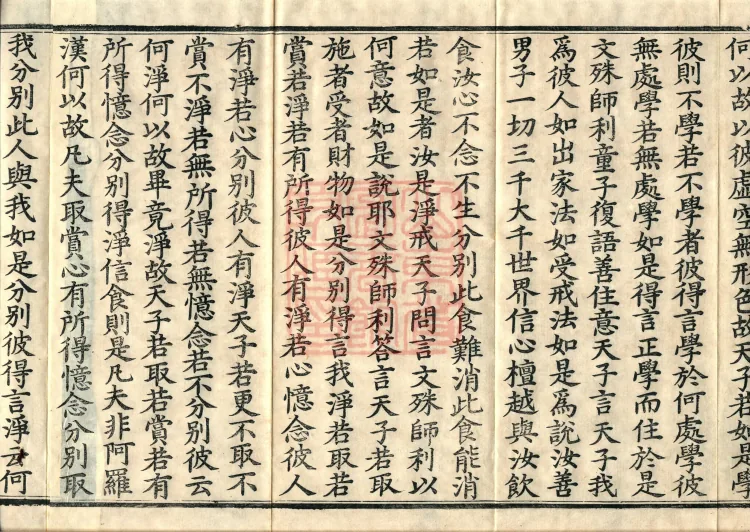 何以故以彼虛空無形色故天子若如是學
彼則不學若不學者彼得言學於何處學彼
無處學若無處學如是得言正學而住於是
文殊師利童子復語善住意天子言天子我
爲彼人如出家法如受戒法如是爲說汝善
男子一切三千大千世界信心檀越與汝飲
食汝心不念不生分別此食難消此食能消
若如是者汝是淨戒天子問言文殊師利以
何意故如是說耶文殊師利答言天子若取
施者受者財物如是分別得言我淨若取若
賞若淨若有所得彼人有淨若心憶念彼人
有淨若心分別彼人有淨天子若更不取不
賞不淨若無所得若無憶念若不分別彼云
何淨何以故畢竟淨故天子若取若賞若有
所得憶念分別得淨信食則是凡夫非阿羅
漢何以故凡夫取賞心有所得憶念分別取
我分別此人與我如是分別彼得言淨云何